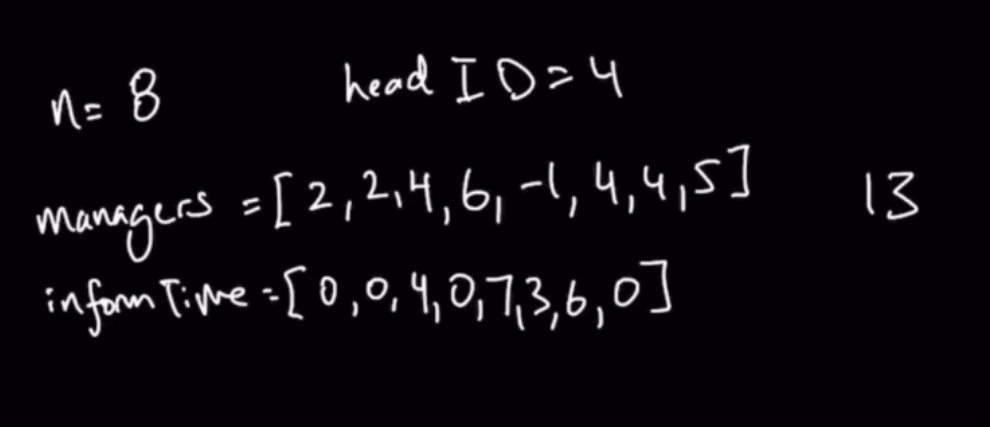 n= 8 head ID=4
managers =[2,2,4,6,-1,4,4,5] 13
informTime=[0,0,4,0,7,3,6,0]